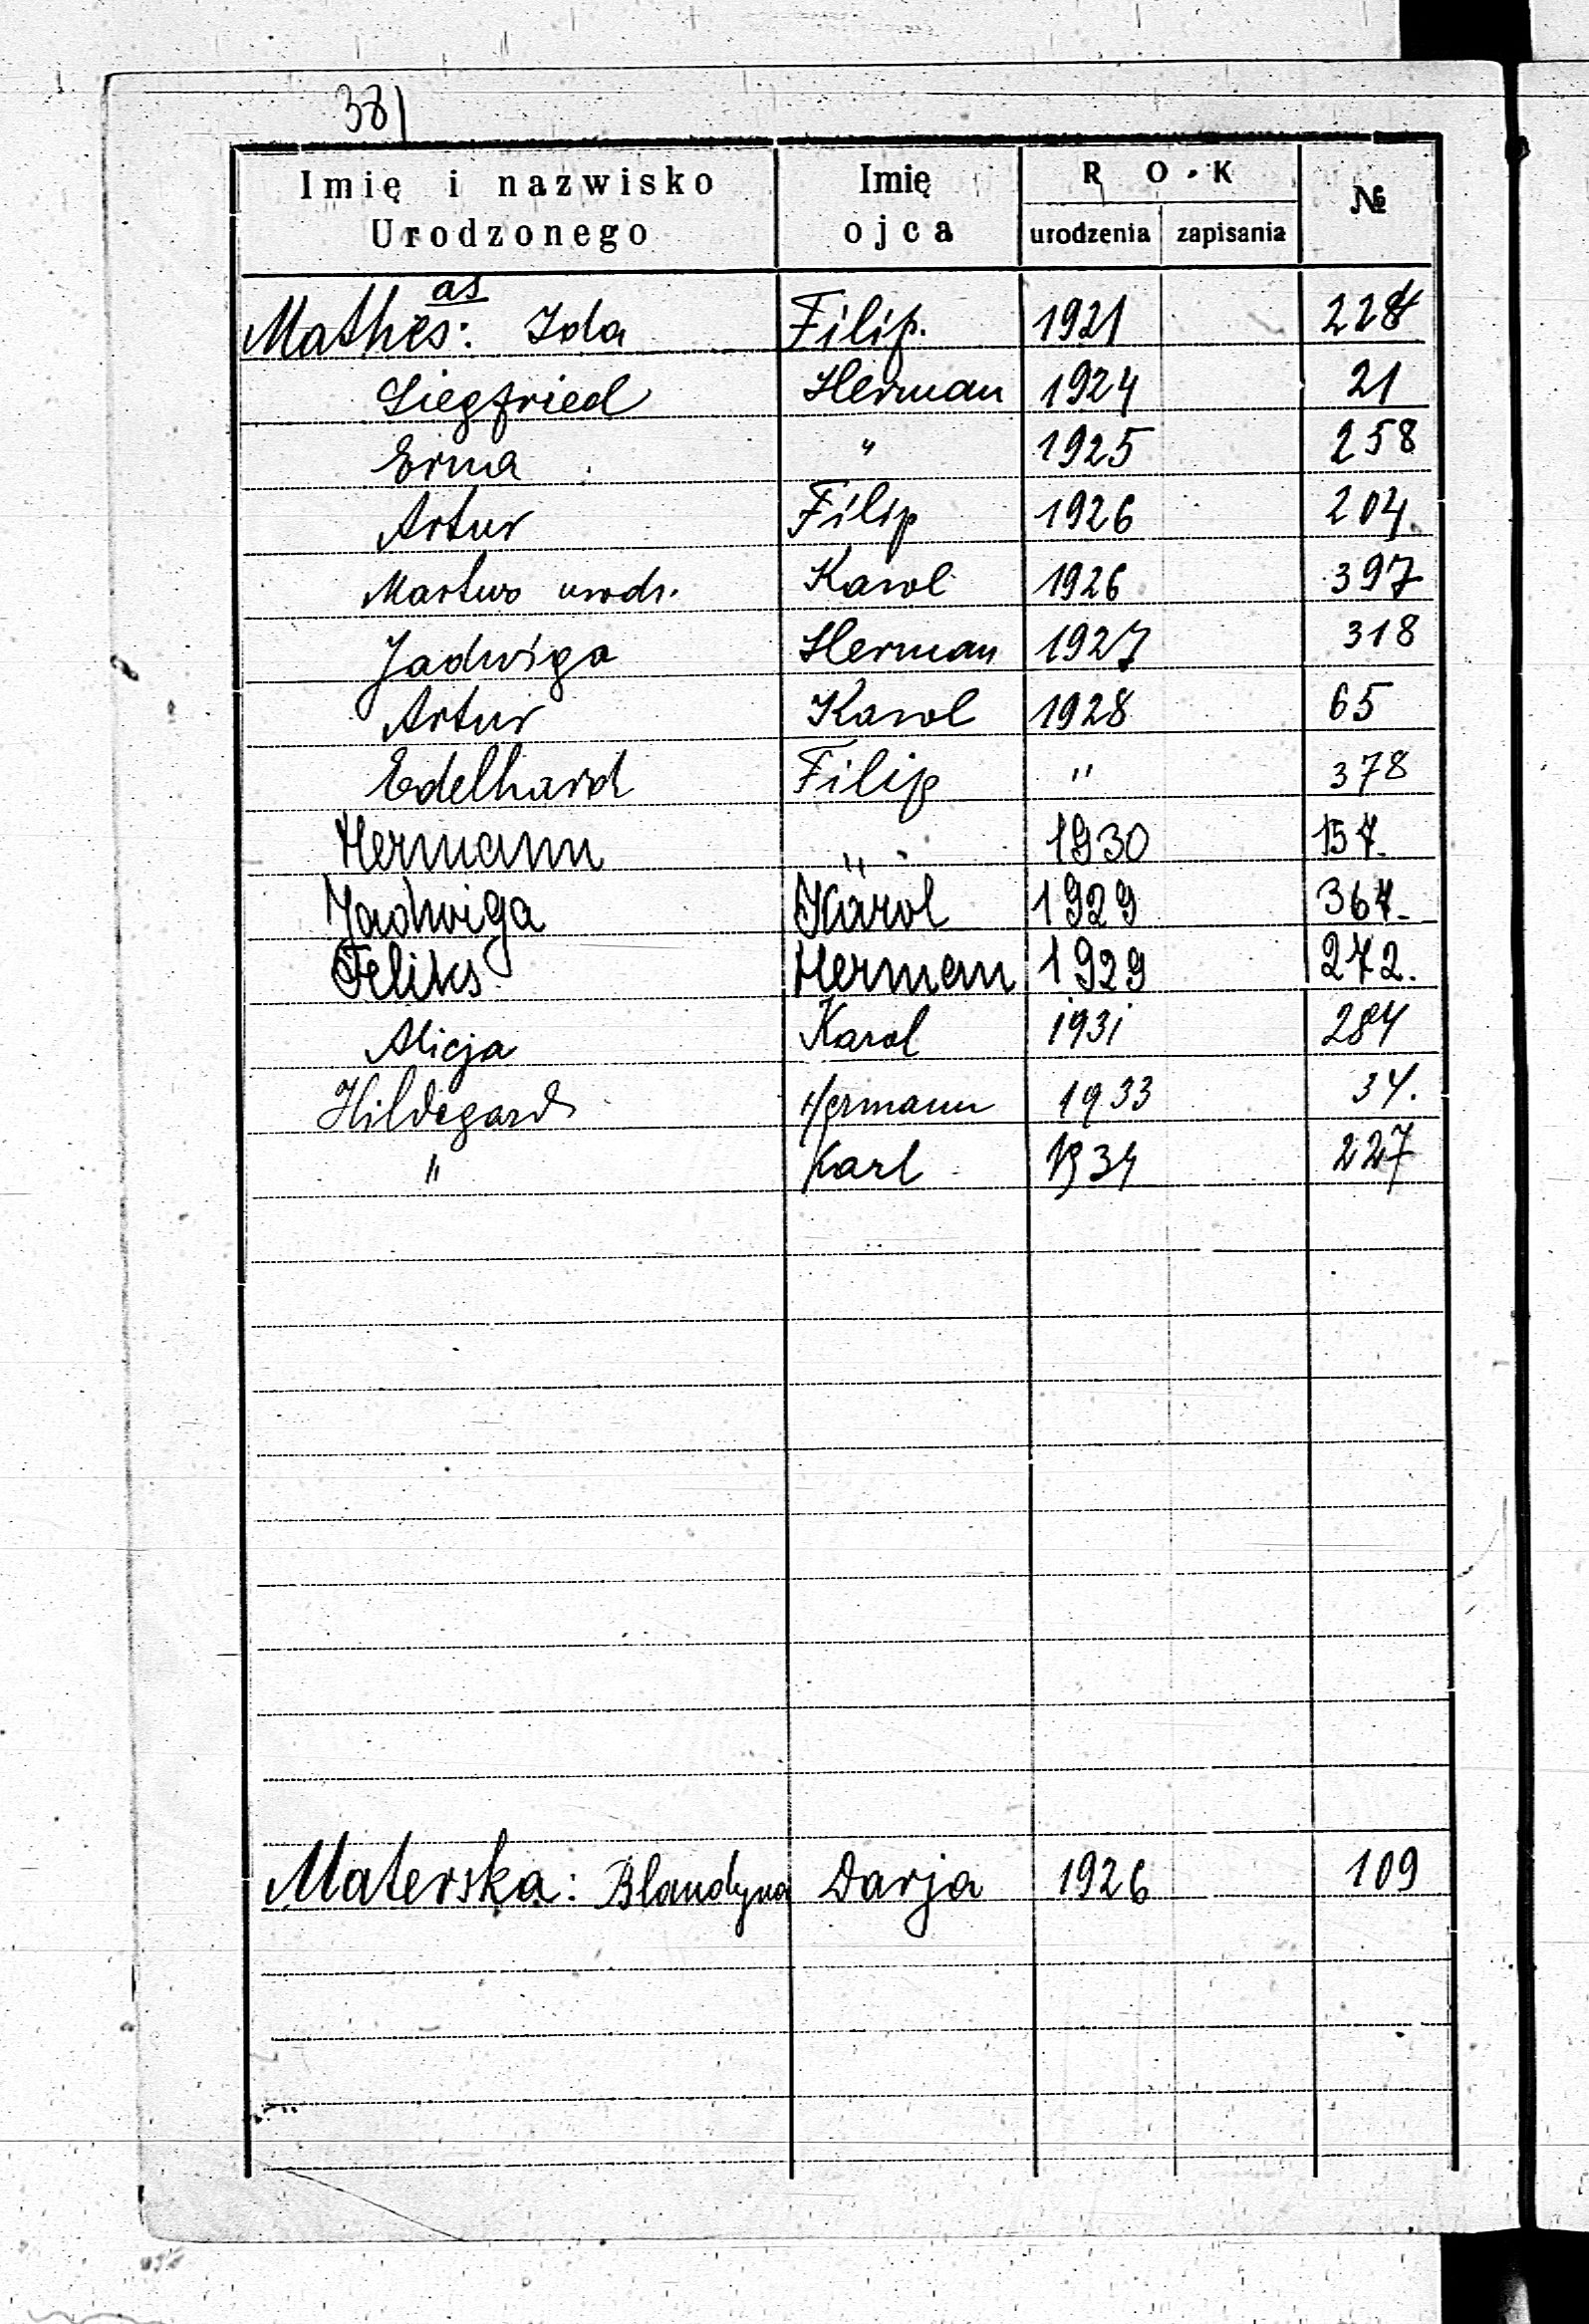 381
Imię i nazwisko Urodzonego Imię ojca R O K urodzenia zapisania №
as
Mathes: Ida Filip. 1921 228
Siegfried Herman 1924 21
Erna " 1925 258
Artur Filip 1926 204
Martwo urodz. Karol 1926 397
Jadwiga Herman 1927 318
Artur Karol 1928 65
Edelhard Filip " 378
Hermann " 1930 157.
Jadwiga Karol 1929 367.
Feliks Herman 1929 272.
Alicja Karol 1931 284
Hildegard Hermann 1933 34.
" Karl 1934 227
Materska: Blandyna Darja 1926 109